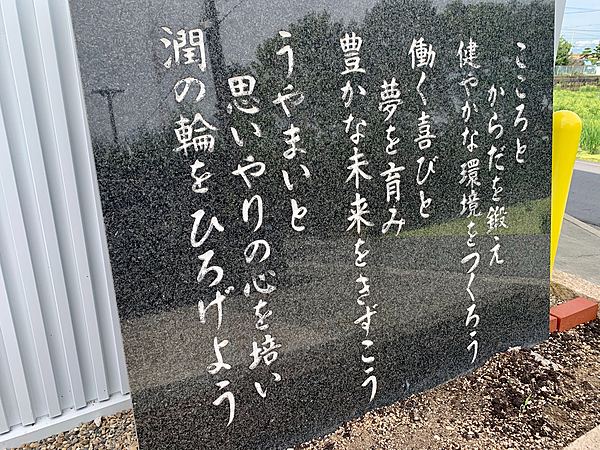 こころと
からだを鍛え
健やかな環境をつくろう
働く喜びと
夢を育み
豊かな未来をきずこう
うやまいと
思いやりの心を培い
潤の輪をひろげよう